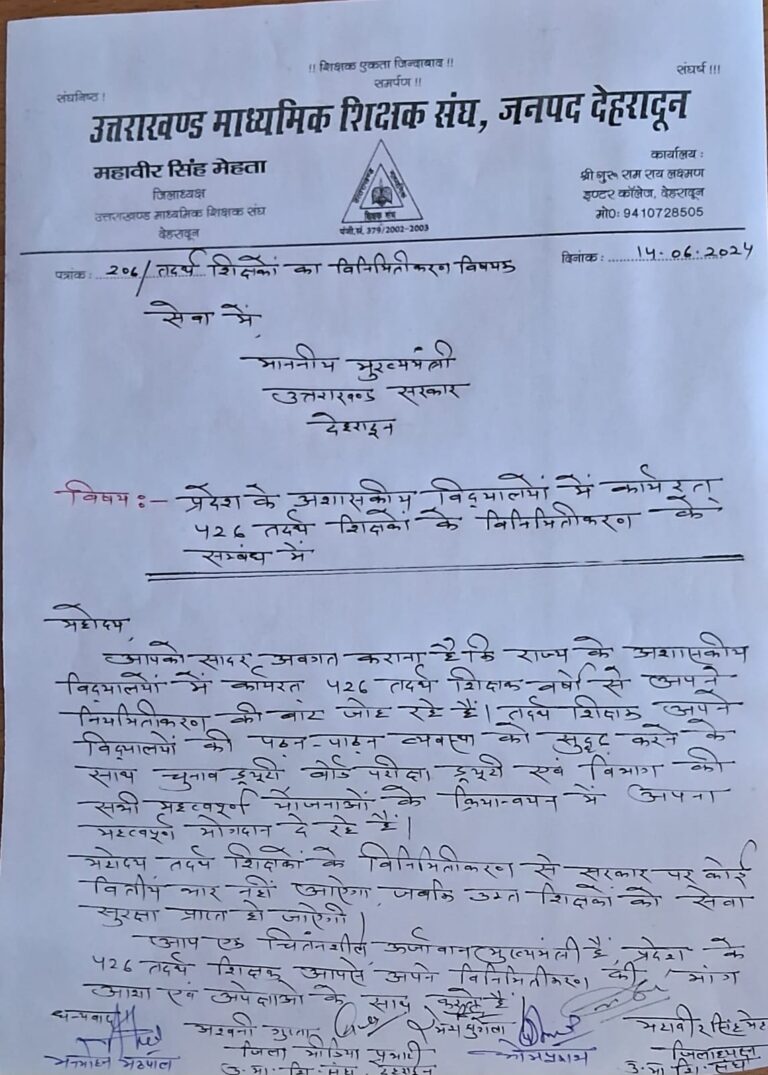 !! शिक्षक एकता जिन्दाबाद !!
संघनिष्ठ !
समर्पण !!
संघर्ष !!!
उत्तराखण्ड माध्यमिक शिक्षक संघ, जनपद देहरादून
महावीर सिंह मेहता
जिलाध्यक्ष
उत्तराखण्ड माध्यमिक शिक्षक संघ
देहरादून
शिक्षक संघ
पंजी.सं. 379/2002-2003
कार्यालय :
श्री गुरू राम राय लक्ष्मण
इण्टर कॉलेज, देहरादून
मो0: 9410728505
पत्रांक: 206/ तदर्थ शिक्षकों का विनिमितीकरण विषयक
दिनांक: 14.06.2024
सेवा में,
माननीय मुख्यमंत्री
उत्तराखण्ड सरकार
देहरादून
विषय :- प्रदेश के अशासकीय विद्यालयों में कार्यरत्
426 तदर्थ शिक्षकों के विनिमितीकरण के
सम्बंध में
महोदय,
आपको सादर अवगत कराना है कि राज्य के अशासकीय
विद्यालयों में कार्यरत 426 तदर्थ शिक्षक वर्षों से अपने
नियमितीकरण की बाट जोह रहे हैं। तदर्थ शिक्षक अपने
विद्यालयों की पठन-पाठन व्यवस्था को सुदृढ करने के
साथ चुनाव ड्यूटी बोर्ड परीक्षा ड्यूटी एवं विभाग की
सभी महत्वपूर्ण योजनाओं के क्रियान्वयन में अपना
महत्वपूर्ण योगदान दे रहे हैं।
महोदय तदर्थ शिक्षकों के विनिमितीकरण से सरकार पर कोई
वित्तीय भार नहीं आऐगा, जबकि उक्त शिक्षकों को सेवा
सुरक्षा प्राप्त हो जाऐगी।
आप एक चिंतनशील ऊर्जावान मुख्यमंत्री हैं, प्रदेश के
426 तदर्थ शिक्षक आपसे अपने विनिमितीकरण की मांग
आशा एवं अपेक्षाओं के साथ करते हैं
धन्यवाद
अश्वनी गुप्ता
जिला मीडिया प्रभारी
उ.मा.शि.संघ, देहरादून
महावीर सिंह मेहता
जिलाध्यक्ष
उ.मा.शि.संघ